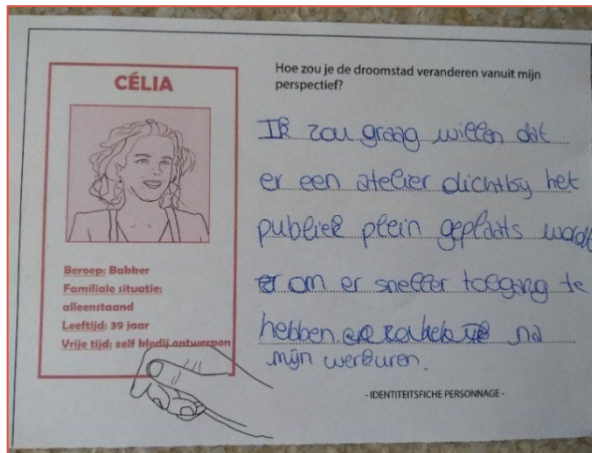 CÉLIA
Beroep: Bakker
Familiale situatie:
alleenstaand
Leeftijd: 39 jaar
Vrije tijd: zelf kledij ontwerpen
Hoe zou je de droomstad veranderen vanuit mijn
perspectief?
Ik zou graag willen dat
er een atelier dichtby het
publiek plein geplaats wordt
om er sneller toegang te
hebben na
mijn werkuren.
- IDENTITEITSFICHE PERSONNAGE -